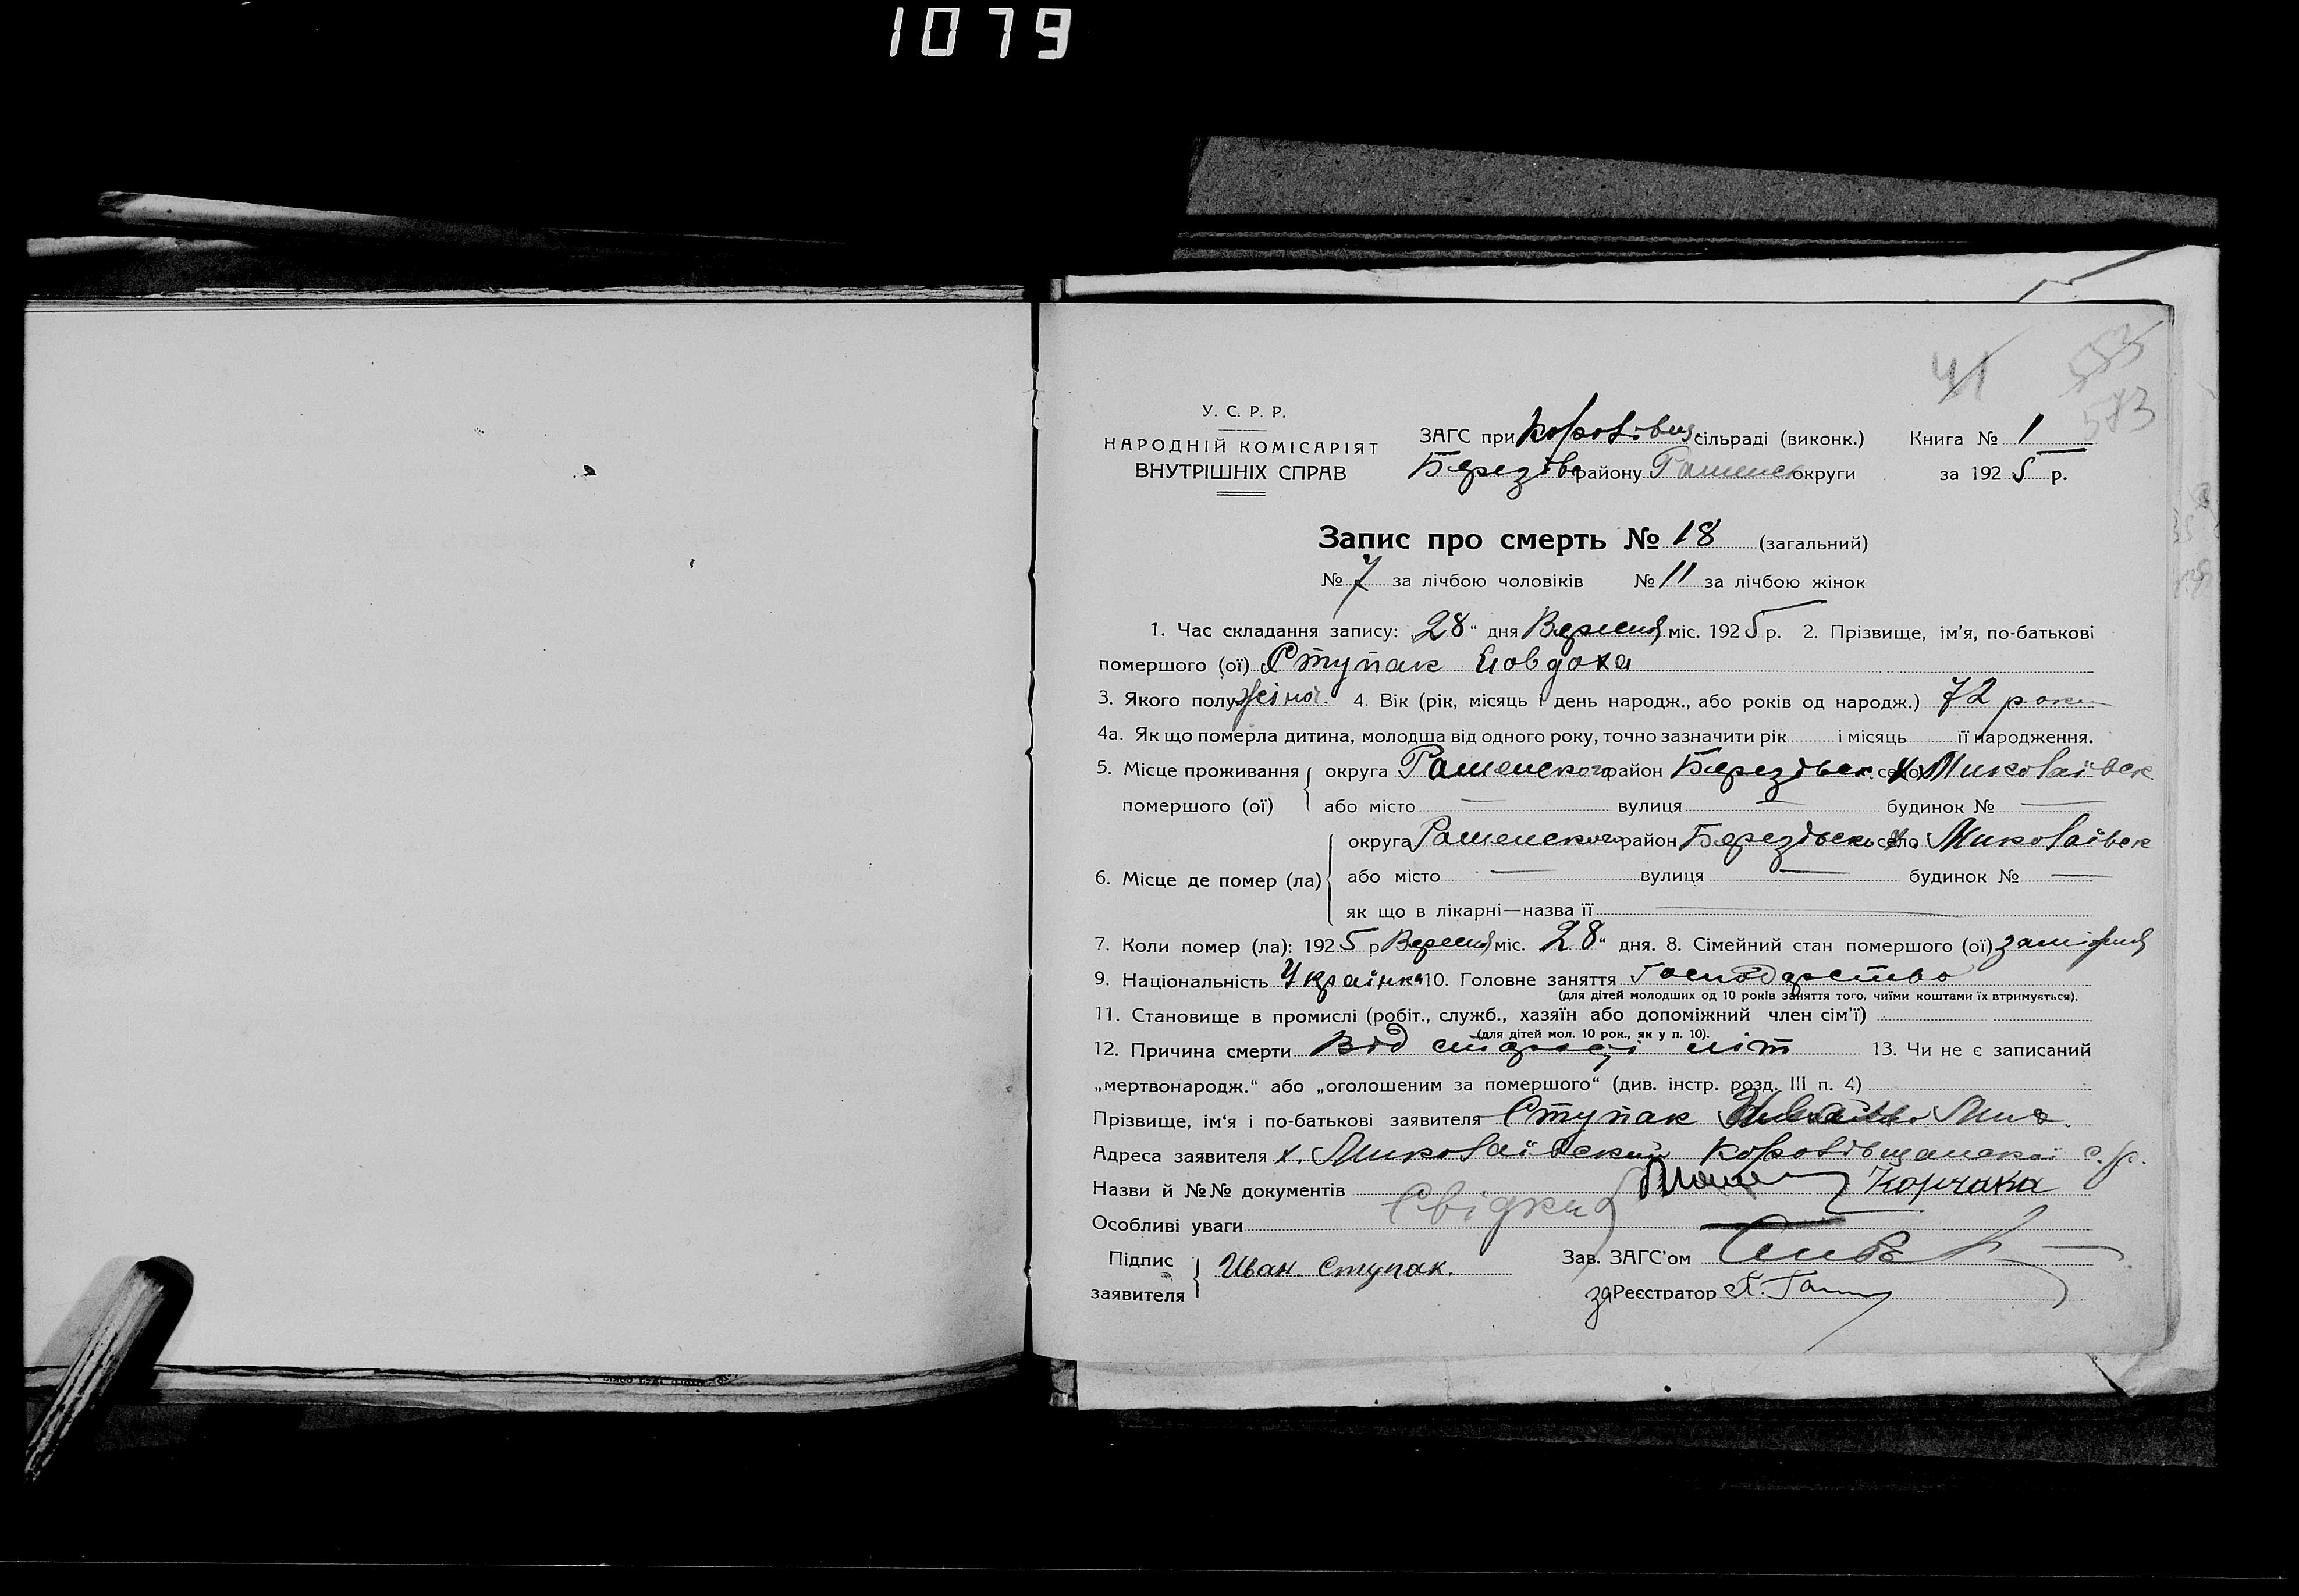 1079
41
553
573
У. С. Р. Р.
НАРОДНІЙ КОМІСАРІЯТ
ВНУТРІШНІХ СПРАВ
ЗАГС при Коровівщ сільраді (виконк.) Книга № 1
Березівс району Гашенск округи за 1925 р.
Запис про смерть № 18 (загальний)
№ 7 за лічбою чоловіків № 11 за лічбою жінок
1. Час складання запису: „28“ дня Вересня міс. 1925 р. 2. Прізвище, ім'я, по-батькові
помершого (ої) Ступак Явдоха
3. Якого полу жіноч. 4. Вік (рік, місяць і день народж., або років од народж.) 72 роки
4а. Як що померла дитина, молодша від одного року, точно зазначити рік і місяць її народження.
5. Місце проживання округа район Березівск село х. Миколаївск
помершого (ої) або місто — вулиця — будинок № —
округа район Березівськ село х Миколаївск
6. Місце де помер (ла) або місто — вулиця — будинок № —
як що в лікарні—назва її —
7. Коли помер (ла): 1925 р Вересня міс. 28“ дня. 8. Сімейний стан помершого (ої) заміжня
9. Національність Українка 10. Головне заняття Господарство
(для дітей молодших од 10 років заняття того, чиїми коштами їх втримується).
11. Становище в промислі (робіт., служб., хазяїн або допоміжний член сім'ї)
(для дітей мол. 10 рок., як у п. 10).
12. Причина смерти Від старості літ 13. Чи не є записаний
„мертвонародж.“ або „оголошеним за помершого“ (див. інстр. розд. III п. 4)
Прізвище, ім'я і по-батькові заявителя Ступак
Адреса заявителя х. Миколаївский Коровівщанскої с.р.
Назви й №№ документів Свідки Корчака
Особливі уваги
Підпис заявителя Иван Ступак. Зав. ЗАГС'ом
за Реєстратор